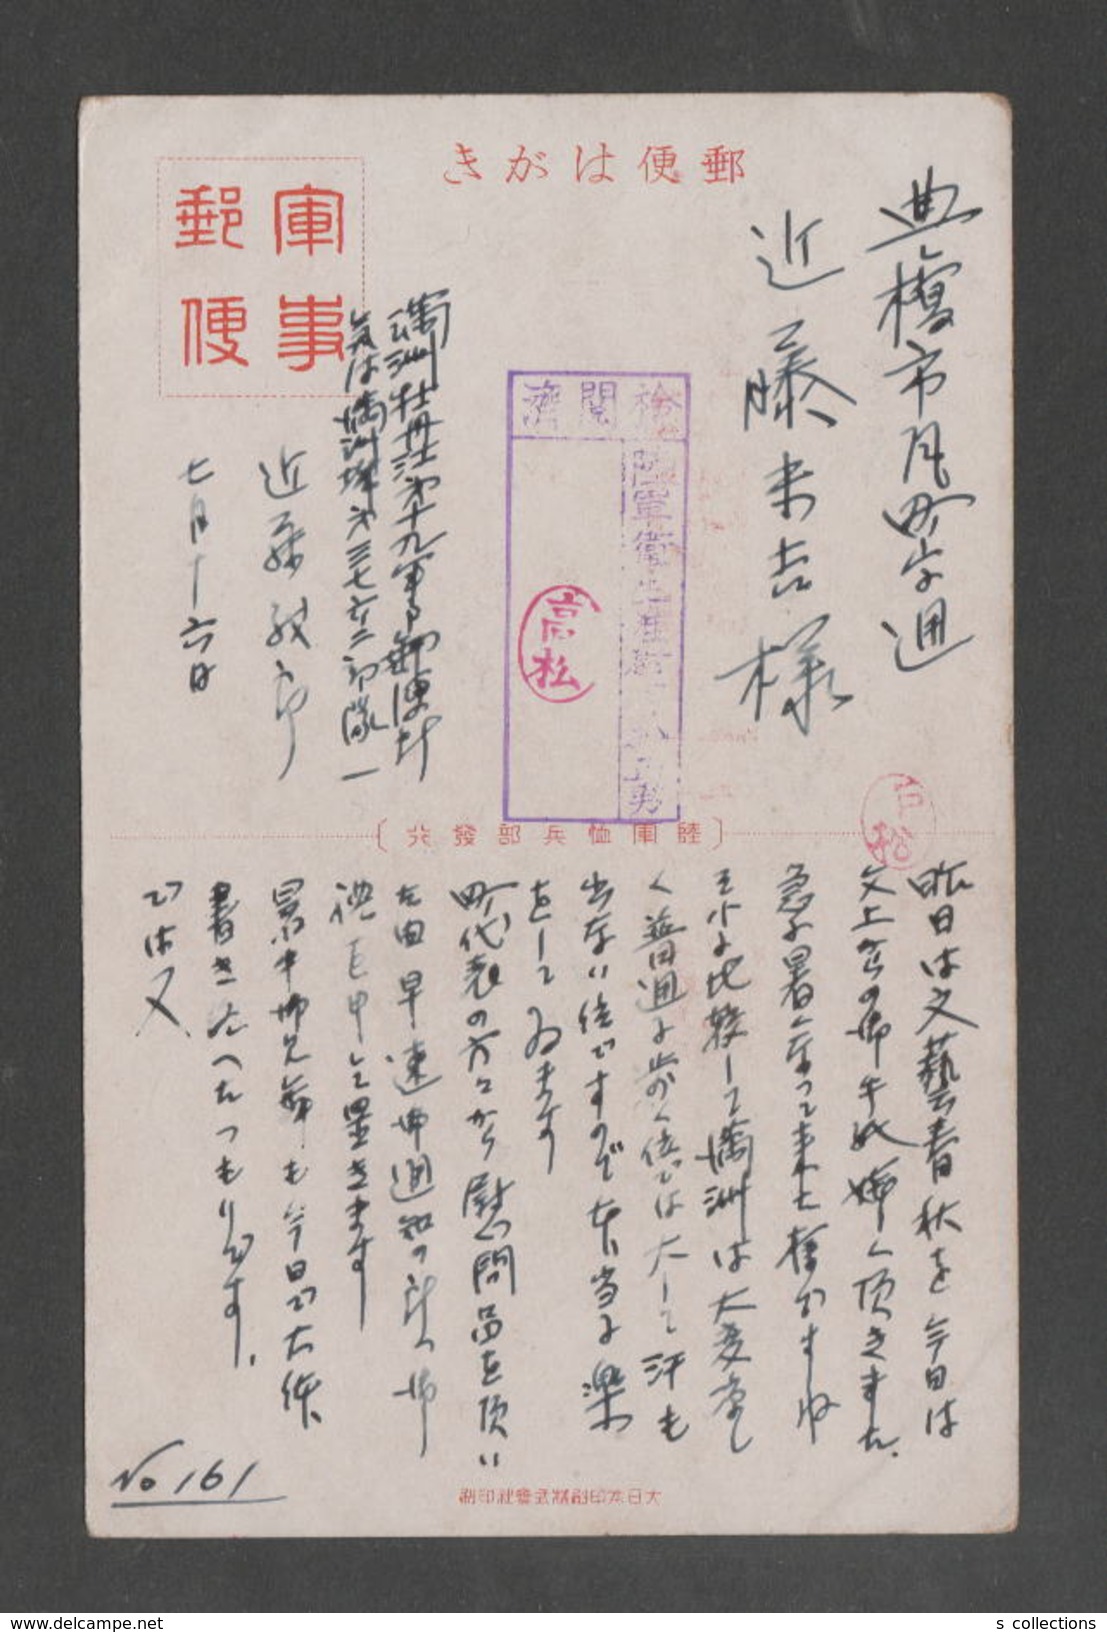 郵便はがき
軍事
郵便
豊橋市月町字通
近藤末吉様
検閲済
陸軍衛生
高松
満洲牡丹江第十九軍事郵便所
気付満洲第三七六二部隊
近藤
七月十六日
高松
〔陸軍恤兵部發行〕
昨日は文藝春秋を今日は
文上からの御手紙嬉しく頂きました。
急に暑くなって来た様ですね
それに比較して満洲は大変涼し
く普通に歩く位では大して汗も
出ない位ですので本当に楽
をしてゐます
町代表の方々から慰問品を頂い
た由早速御通知の
礼
暑中御見舞も今日
書きたへたつもりです。
では又
No 161
大日本印刷株式會社印刷
s collections
www.delcampe.net